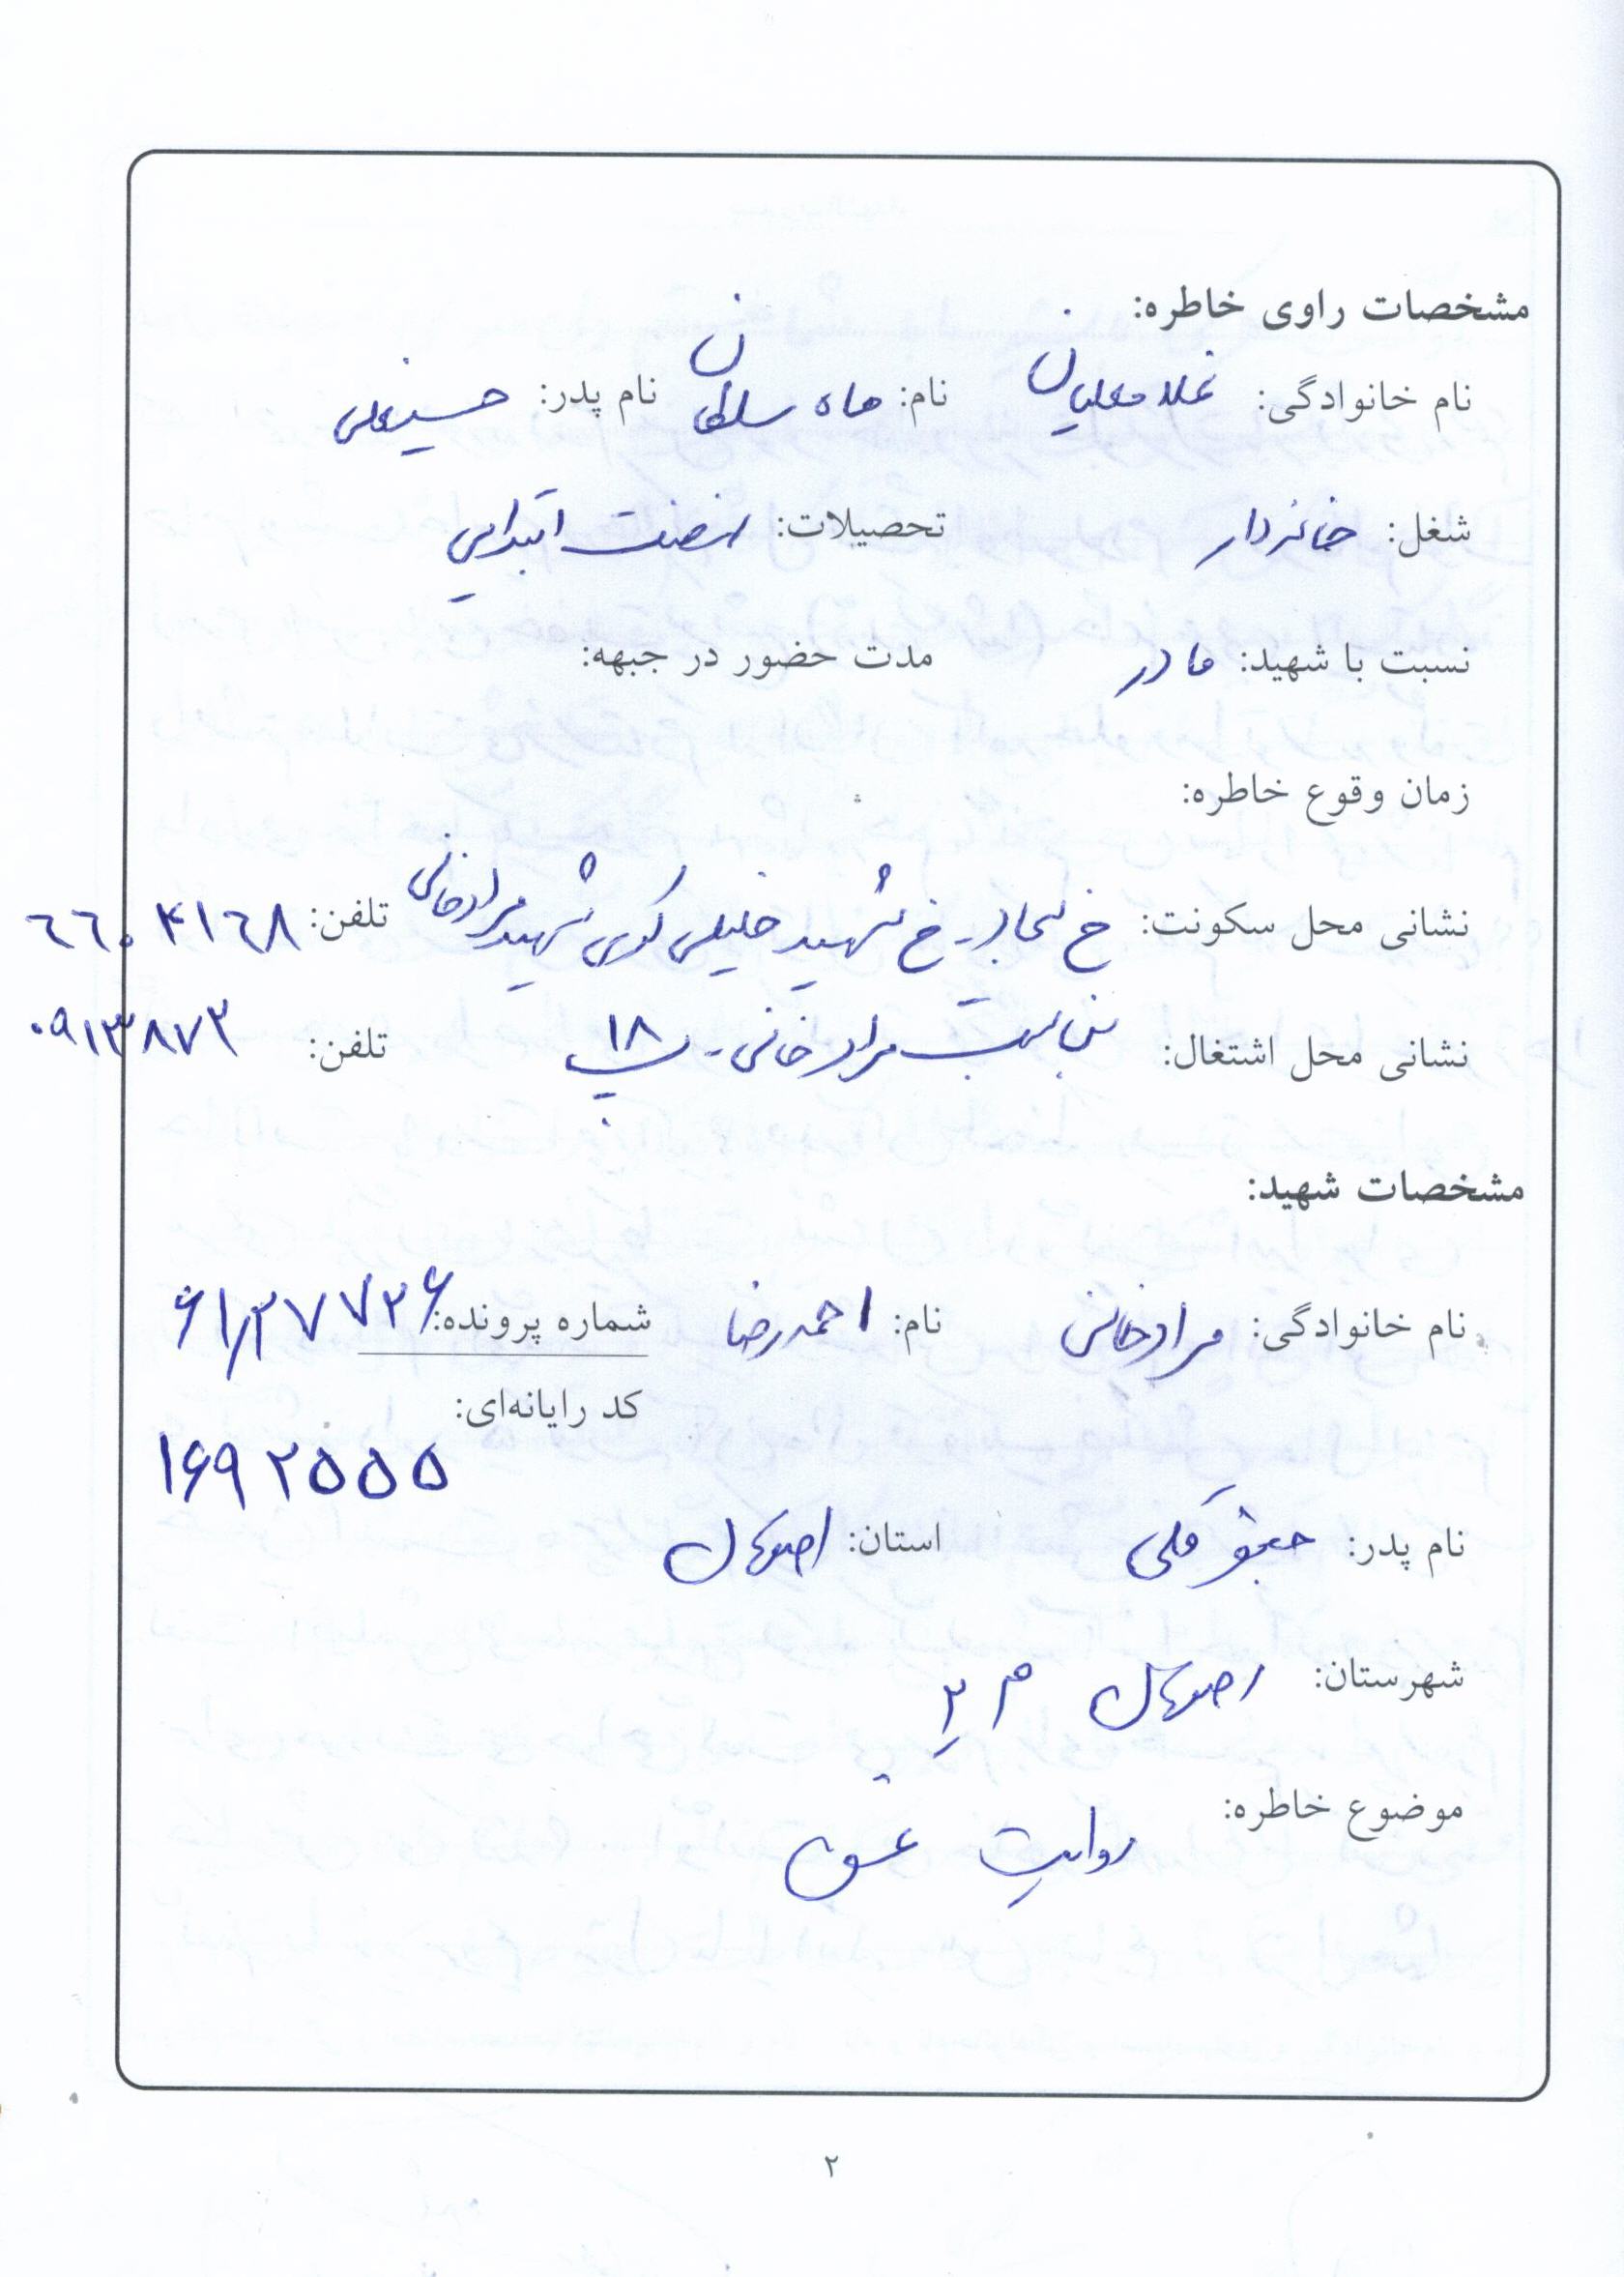 مشخصات راوی خاطره:
نام خانوادگی: غلامعلیان نام: ماه سلطان نام پدر: حسینعلی
شغل: خانه‌دار تحصیلات: نهضت ابتدایی
نسبت با شهید: مادر مدت حضور در جبهه:
زمان وقوع خاطره:
نشانی محل سکونت: خ شهید خلیلی کوی شهید مرادخانی تلفن: ٦٦٠٤١٦٨
نشانی محل اشتغال: بن بست مرادخانی - پ ۱۸ تلفن: ۰۹۱۳۸۷۳
مشخصات شهید:
نام خانوادگی: مرادخانی نام: احمدرضا شماره پرونده: ۶۱/۲۷۷۲۶
کد رایانه‌ای:
۱۶۹۲۵۵۵
نام پدر: جعفرقلی استان: اصفهان
شهرستان: اصفهان م ۲
موضوع خاطره: روایت عشق
۲